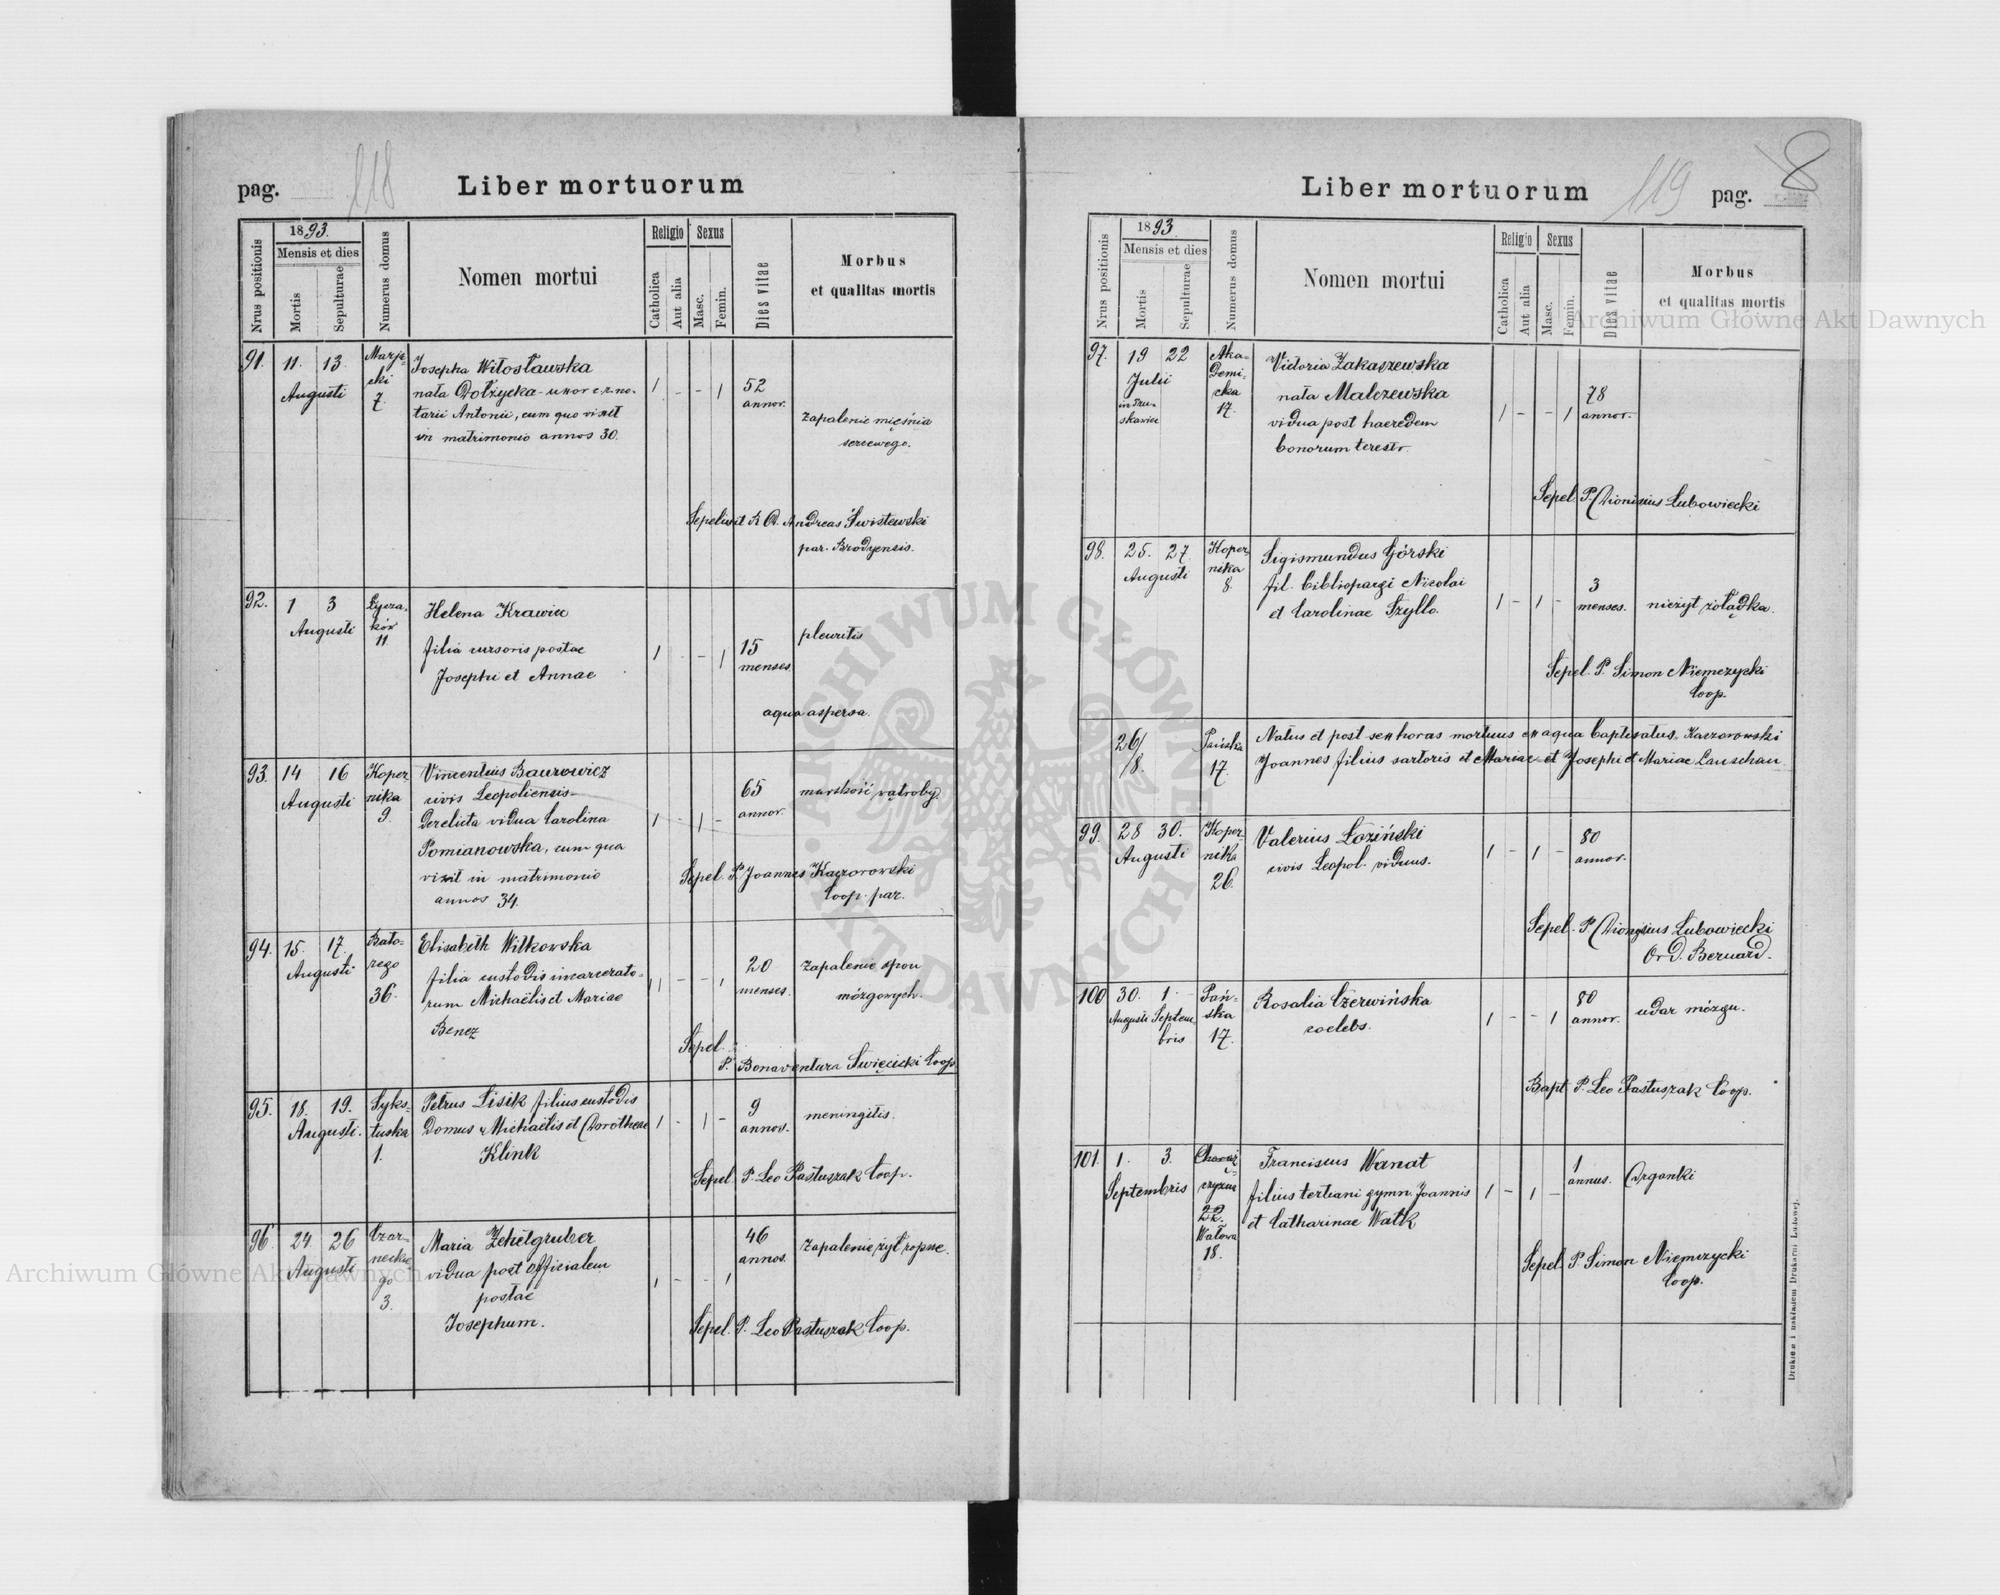 118
pag.
Liber mortuorum
1893.
Mensis et dies
Nrus positionis
Mortis
Sepulturae
Numerus domus
Nomen mortui
Religio
Catholica
Aut alia
Sexus
Masc.
Femin.
Dies vitae
Morbus
et qualitas mortis
91. 11. 13.
Augusti
7.
Josepha Witosławska
nata Dołżycka - uxor
tarii Antonii, cum quo vixit
in matrimonio annos 30.
1 - - 1
52
annor.
zapalenie mięśnia
sercowego.
Sepelivit Andreas Świstewski
par. Brodyensis.
92. 1 3
Augusti
Łycza-
ków
11.
Helena Krawiec
filia cursoris postae
Josephi et Annae
1 - - 1
15
menses
pleuritis
aqua aspersa.
93. 14 16
Augusti
Koper
nika
9.
Vincentius Baurowicz
civis Leopoliensis
derelicta vidua Carolina
Pomianowska, cum qua
vixit in matrimonio
annos 34.
1 - 1 -
65
annor.
marskość wątroby
Sepel. P. Joannes Kaczorowski
Coop. par.
94. 15. 17.
Augusti
Bato-
rego
36.
Elisabeth Witkowska
filia custodis incarcerato-
rum Michaëlis et Mariae
Benez
1 - - 1
20
menses.
zapalenie opon
mózgowych.
Sepel.
P. Bonaventura Święcicki Coop.
95. 18. 19.
Augusti.
Syks-
tuska
1.
Petrus Lisik filius custodis
domus Michaëlis et Dorotheae
Klink
1 - 1 -
9
annos.
meningitis.
Sepel. P. Leo Pastuszak Coop.
96. 24. 26
Augusti
Czar-
neckie
go
3.
Maria Zehetgruber
vidua post officialem
postae
Josephum.
1 - - 1
46
annos.
zapalenie żył ropne.
Sepel. P. Leo Pastuszak Coop.
Liber mortuorum
119
pag.
8
1893.
Mensis et dies
Nrus positionis
Mortis
Sepulturae
Numerus domus
Nomen mortui
Religio
Catholica
Aut alia
Sexus
Masc.
Femin.
Dies vitae
Morbus
et qualitas mortis
97. 19 22
Julii
in Tru-
skawiec
Aka-
demi-
cka
17.
Victoria Zakaszewska
nata Malczewska
vidua post haeredem
bonorum terestr.
1 - - 1
78
annor.
Sepel. P. Dionisius Lubowiecki
98. 25. 27.
Augusti
Koper
nika
8.
Sigismundus Górski
fil. bibliopargi Nicolai
et Carolinae Szyllo.
1 - 1 -
3
menses.
nieżyt żołądka.
Sepel. P. Simon Niemczycki
Coop.
26/
/8.
Pańska
17.
Natus et post sex horas mortuus ex aqua baptisatus. Kaczorowski
Joannes filius sartoris et Mariae et Josephi et Mariae Lauschau
99. 28 30.
Augusti
Koper
nika
26.
Valerius Łoziński
civis Leopol. viduus.
1 - 1 -
80
annor.
Sepel. P. Dionysius Lubowiecki
Ord. Bernard.
100 30. 1.
Augusti Septem
bris
Pań-
ska
17.
Rosalia Czerwińska
coelebs.
1 - - 1
80
annor.
udar mózgu.
Bapt P. Leo Pastuszak Coop.
101. 1. 3.
Septembris
22.
Wałowa
18.
Franciscus Wanat
filius tertiani gymn. Joannis
et Catharinae Watk
1 - 1 -
1
annus.
Drganki
Sepel. P. Simon Niemczycki
Coop.
Drukiem i nakładem Drukarni Ludowej.
Archiwum Główne Akt Dawnych
Archiwum Główne Akt Dawnych
ARCHIWUM GŁÓWNE AKT DAWNYCH